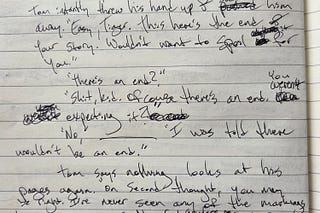 Tom instantly threw his hand up & him
away. "Easy Tiger. This here's the end of
your story. Wouldn't want to spoil for
you."
"There's an end?"
"Shit, kid. Of course there's an end. You weren't
expecting it?"
"No, "I was told there
wouldn't be an end."
Tom says nothing looks at his
pages again. On second thought, you may
be right. I've never seen any of the markings